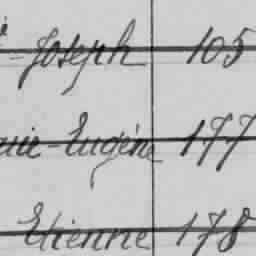 -Joseph 105
-Eugène 177
Etienne 178